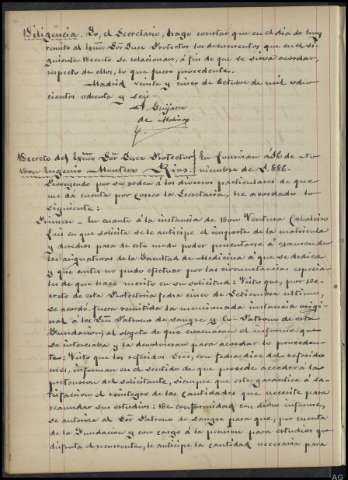 Diligencia. Yo, el Secretario, hago constar que en el dia de hoy
remito al Iltmo. Sôr. Juez Protector los documentos que en el si-
guiente Decreto se relacionan, á fin de que se sirva acordar,
respecto de ellos, lo que fuere procedente.
Madrid veinte y cinco de Octubre de mil ocho-
cientos ochenta y seis.
El
de Molina
Decreto del Iltmo. Sôr. Juez Protector
Don Eugenio Montero Rios.
En Lourizan á 16 de No-
viembre de 1.886.
por su orden á los diversos particulares de que
me da cuenta por el Secretario, he acordado lo
siguiente:
Primero – En cuanto á la instancia de Don Ventura Caballero
Luis en que solicita se le anticipe el importe de la matricula
y derechos para de este modo poder presentarse á examen de
las asignaturas de la Facultad de Medicina á que se dedica
y que antes no pudo efectuar por las circunstancias especia-
les de que hace merito en su solicitud: Visto que, por De-
creto de esta Protectoria fecha cinco de Setiembre ultimo,
se acordó fuera remitida la mencionada instancia origi-
nal á los Sres. Patronos de sangre y Patronos de esta
Fundacion, al objeto de que evacuaran el informe que
se interesaba y la devolvieran para acordar lo proceden-
te: Visto que los referidos Sres., con fecha diez del referido
mes, informan en el sentido de que procede acceder á la
pretension del solicitante, siempre que este garantice á sa-
tisfaccion el reintegro de las cantidades que necesite para
reanudar sus estudios: De conformidad con dicho informe,
se autoriza al Sôr. Patrono de sangre para que, por cuenta
de la Fundacion y con cargo á la pension para estudios que
disfruta el recurrente, le anticipe la cantidad necesaria para
AG